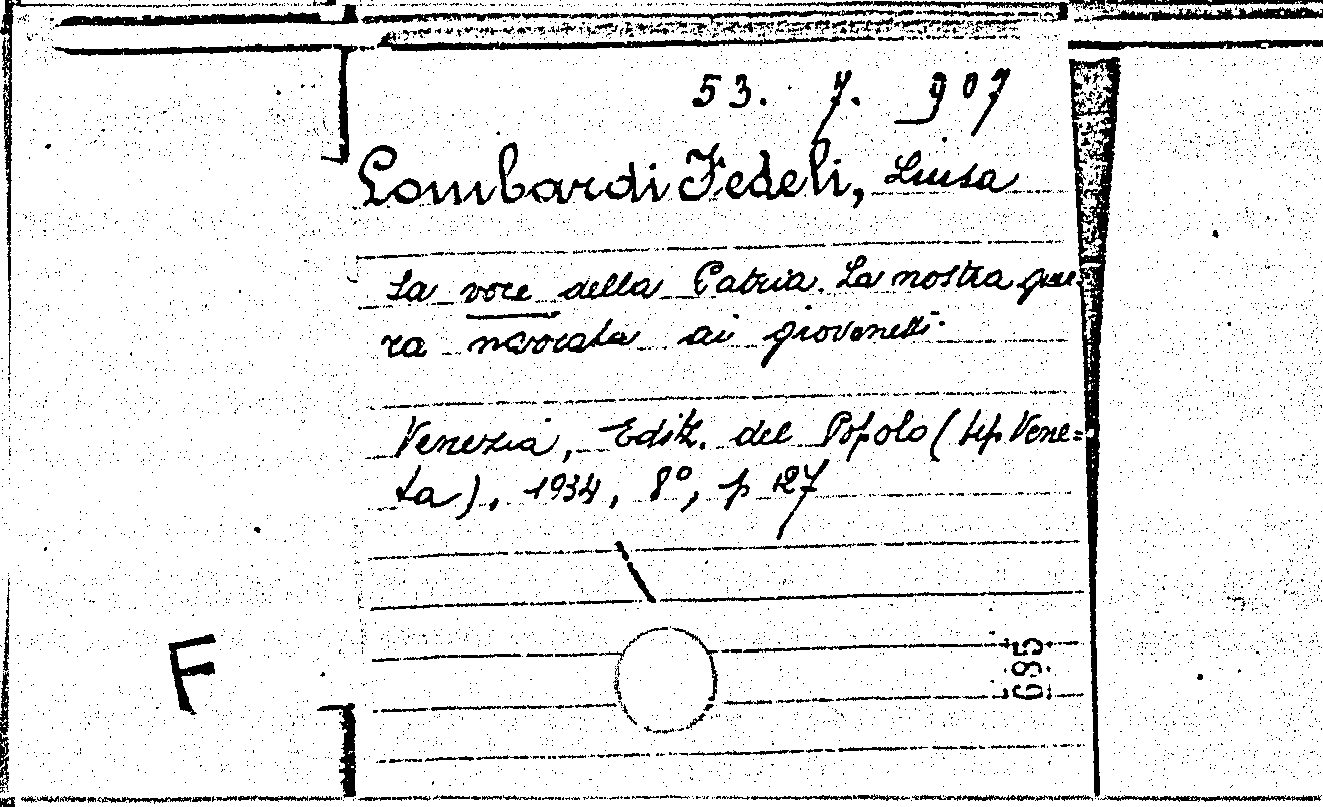 53. 7. 907
Lombardi Fedeli, Luisa
La voce della Patria. La nostra guer
ra narrata ai giovanetti.
Venezia, Editr. del Popolo (tip. Vene=
ta), 1934, 8°, p 127
F
685